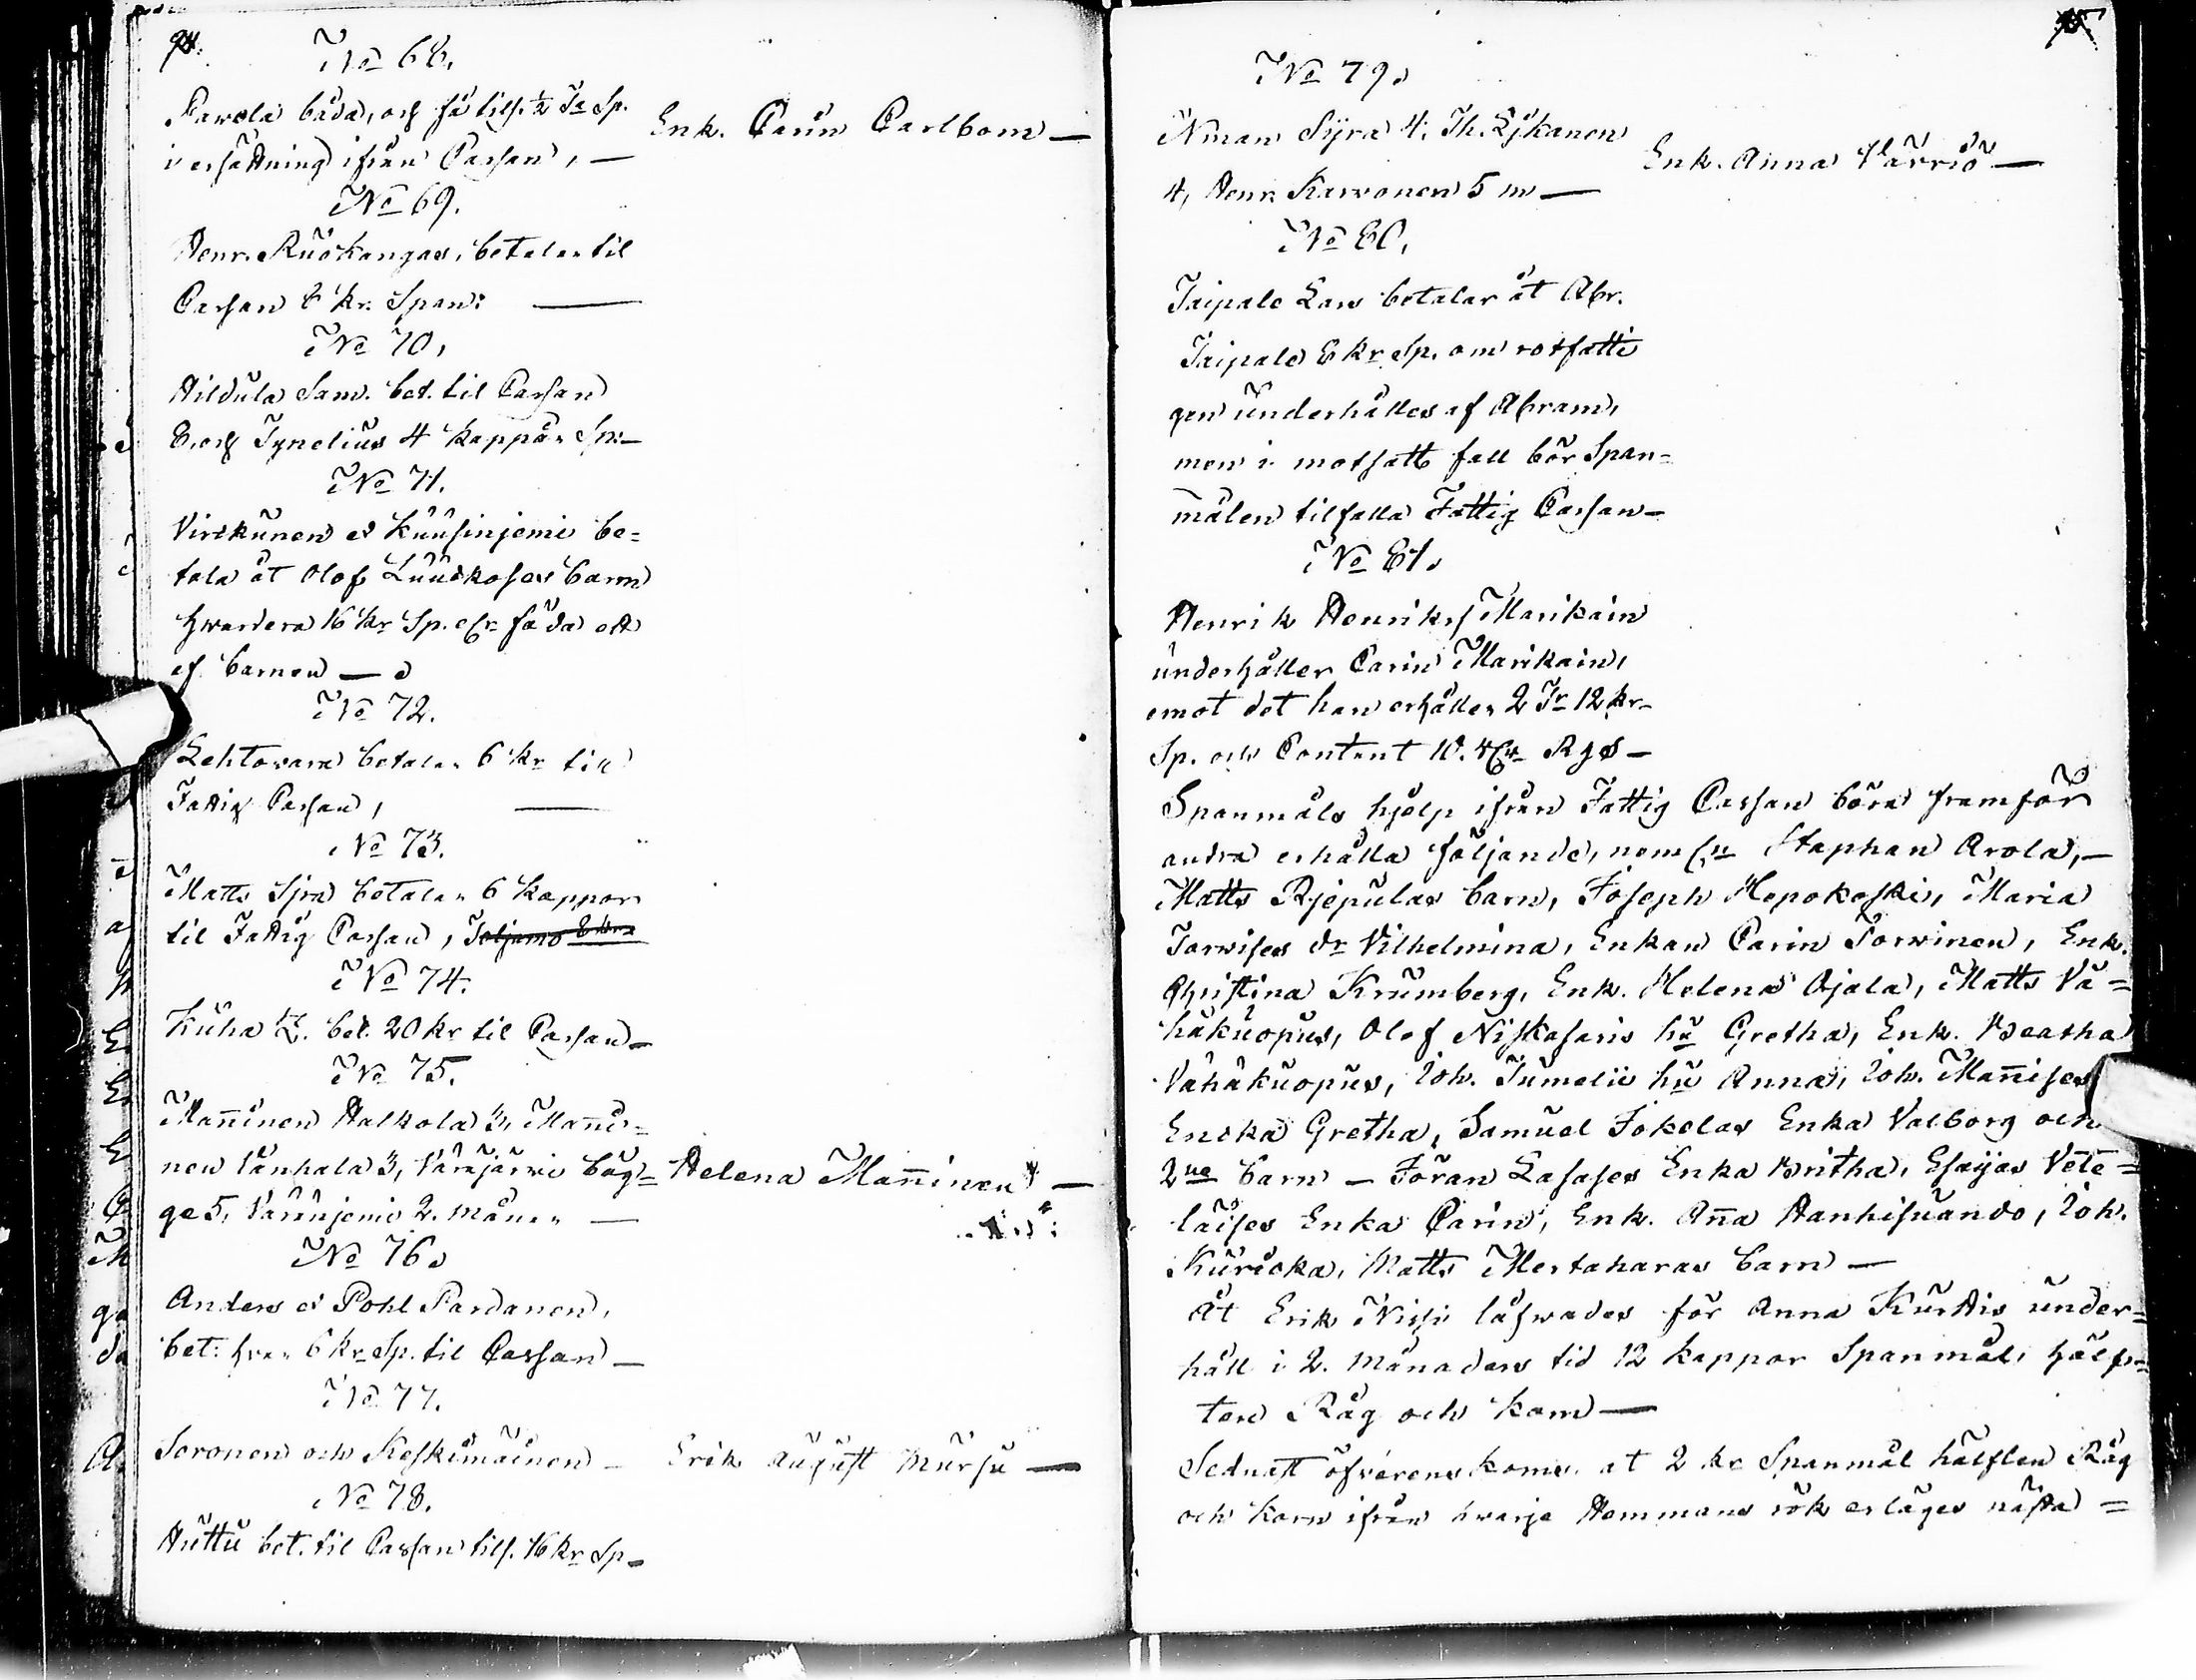 94.
No 68.
Parola båda, och få tills. ½ Tr Sp.
i ersättning ifrån Cassan, —
Enk. Carin Carlbom —
No 69.
Henr. Ruokangas, betalar til
Cassan 8 kr. Span: —
No 70,
Hildula Sam. bet. til Cassan
8, och Ignelius 4 kappar Sp: —
No 71.
Virkkunen et Kuusinjemi be=
tala åt Olof Luuskoses barn
hwardera 16 kr Sp. elr föda ett
af barnen —
No 72.
Lehtovara betalar 6 kr till
Fattig Cassan, —
No 73.
Matts Sjra betalar 6 kappor
til Fattig Cassan,
No 74.
Kuha bet. 20 kr til Cassan —
No 75.
Man̄inen Halkola 3, Man̄i=
nen Vanhala 3, Värrjärwi båg=
ge 5, Vārrinjemi 2. Månar —
Helena Man̄inen —
No 76.
Anders et Pohl Pardanen,
bet: hvar 6 kr Sp. til Cassan —
No 77.
Soronen och Keskimäinen —
Erik August Mursu —
No 78.
Huttu bet. til Cassan tills. 16 kr Sp —
95
No 79.
Niman Sÿrä 4, Th. Lÿkanen
4, Henr. Karvonen 5 m —
Enk. Anna Värriö —
No 80,
Taipale Lars betalar åt Abr.
Taipale 8 kr Sp. om rotfatti
gen underhålles af Abram,
men i motsatt fall bör Span=
målen tilfalla Fattig Cassan —
No 81.
Henrik Henrikss Marikain
underhåller Carin Marikain,
emot det han erhåller 2 Tr 12 kr
Sp. och Content 10. Rgs —
Spanmåls hjelp ifrån Fattig Cassan böra framför
andra erhålla följande, neml. Staphan Arola, —
Matts Rjepulas barn, Joseph Hepokoski, Maria
Torvises dr Vilhelmina, Enkan Carin Torvinen, Enk.
Christina Krumberg, Enk. Helena Ojala, Matts Vä=
häkuopus, Olof Niskasaris hu Gretha, Enk. Beatha
Vähäkuopus, Joh. Jumelii hu Anna, Joh. Man̄ises
Encka Gretha, Samuel Jokelas Enka Valborg och
2ne barn — Göran Lasases Enka Britha, Esaijas Vete=
läises Enka Carin, Enk. An̄a Hanhisuando, Joh.
Kurioka, Matts Mertaharas barn —
Åt Erik Nissi låfwades för Anna Kurttis under=
håll i 2. Månaders tid 12 kappor Spanmål, hälf=
ten Råg och korn —
Sednast öfverenskoms at 2 kr Spanmål hälften Råg
och korn ifrån hvarje Hemmans rök erläges nästa =